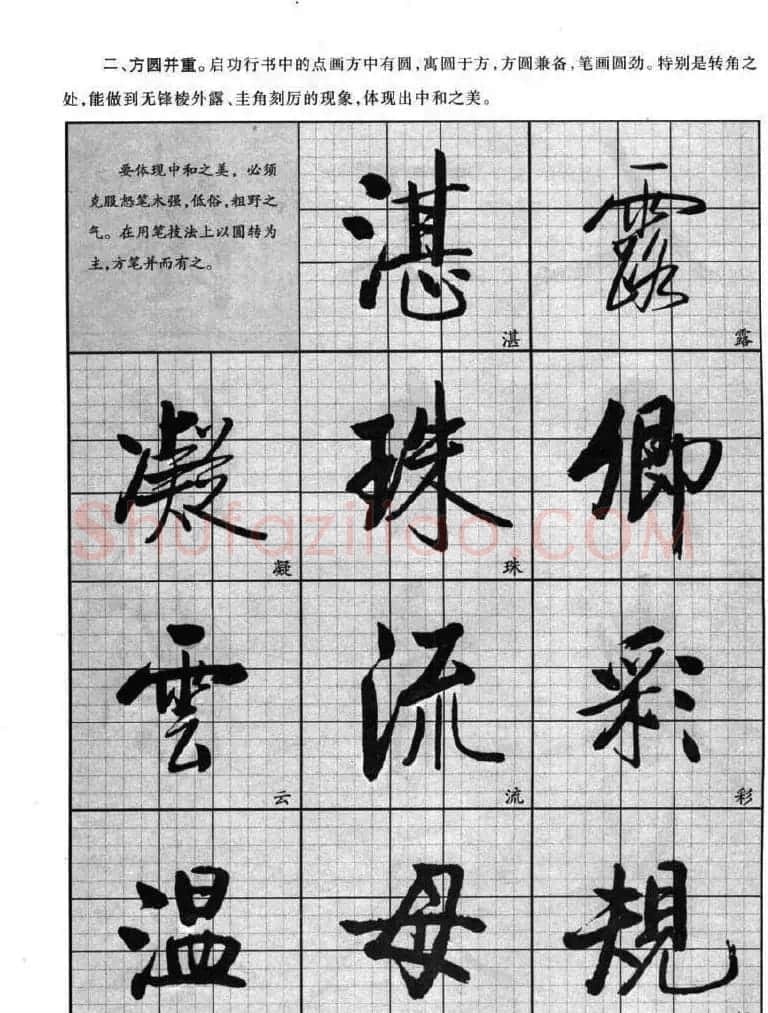 二、方圆并重。启功行书中的点画方中有圆，寓圆于方，方圆兼备，笔画圆劲。特别是转角之
处，能做到无锋棱外露、圭角刻厉的现象，体现出中和之美。
要体现中和之美，必须
克服怒笔木强，低俗，粗野之
气。在用笔技法上以圆转为
主，方笔并而有之。
湛 露
湛 露
凝 珠 卿
凝 珠
Shufaziliao.COM
雲 流 彩
云 流 彩
温 母 規